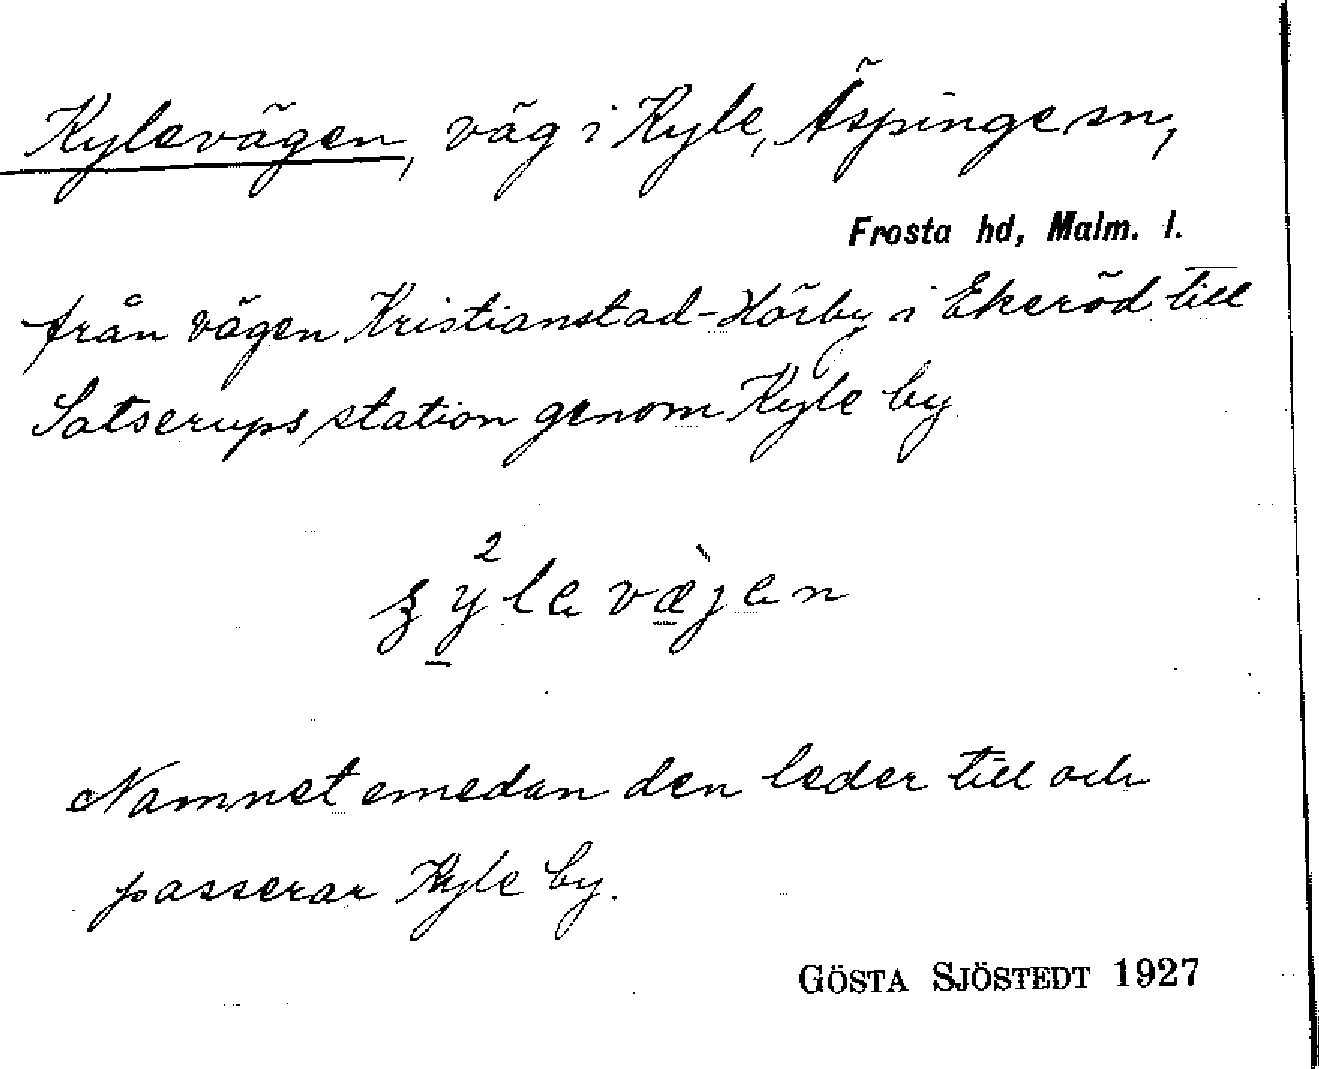 Kylevägen, väg i Kyle, Äspinge sn,
Frosta hd, Malm. l.
från vägen Kristianstad-Hörby i Ekeröd till
Satserups station genom Kyle by
Namnet emedan den leder till och
passerar Kyle by.
GÖSTA SJÖSTEDT 1927